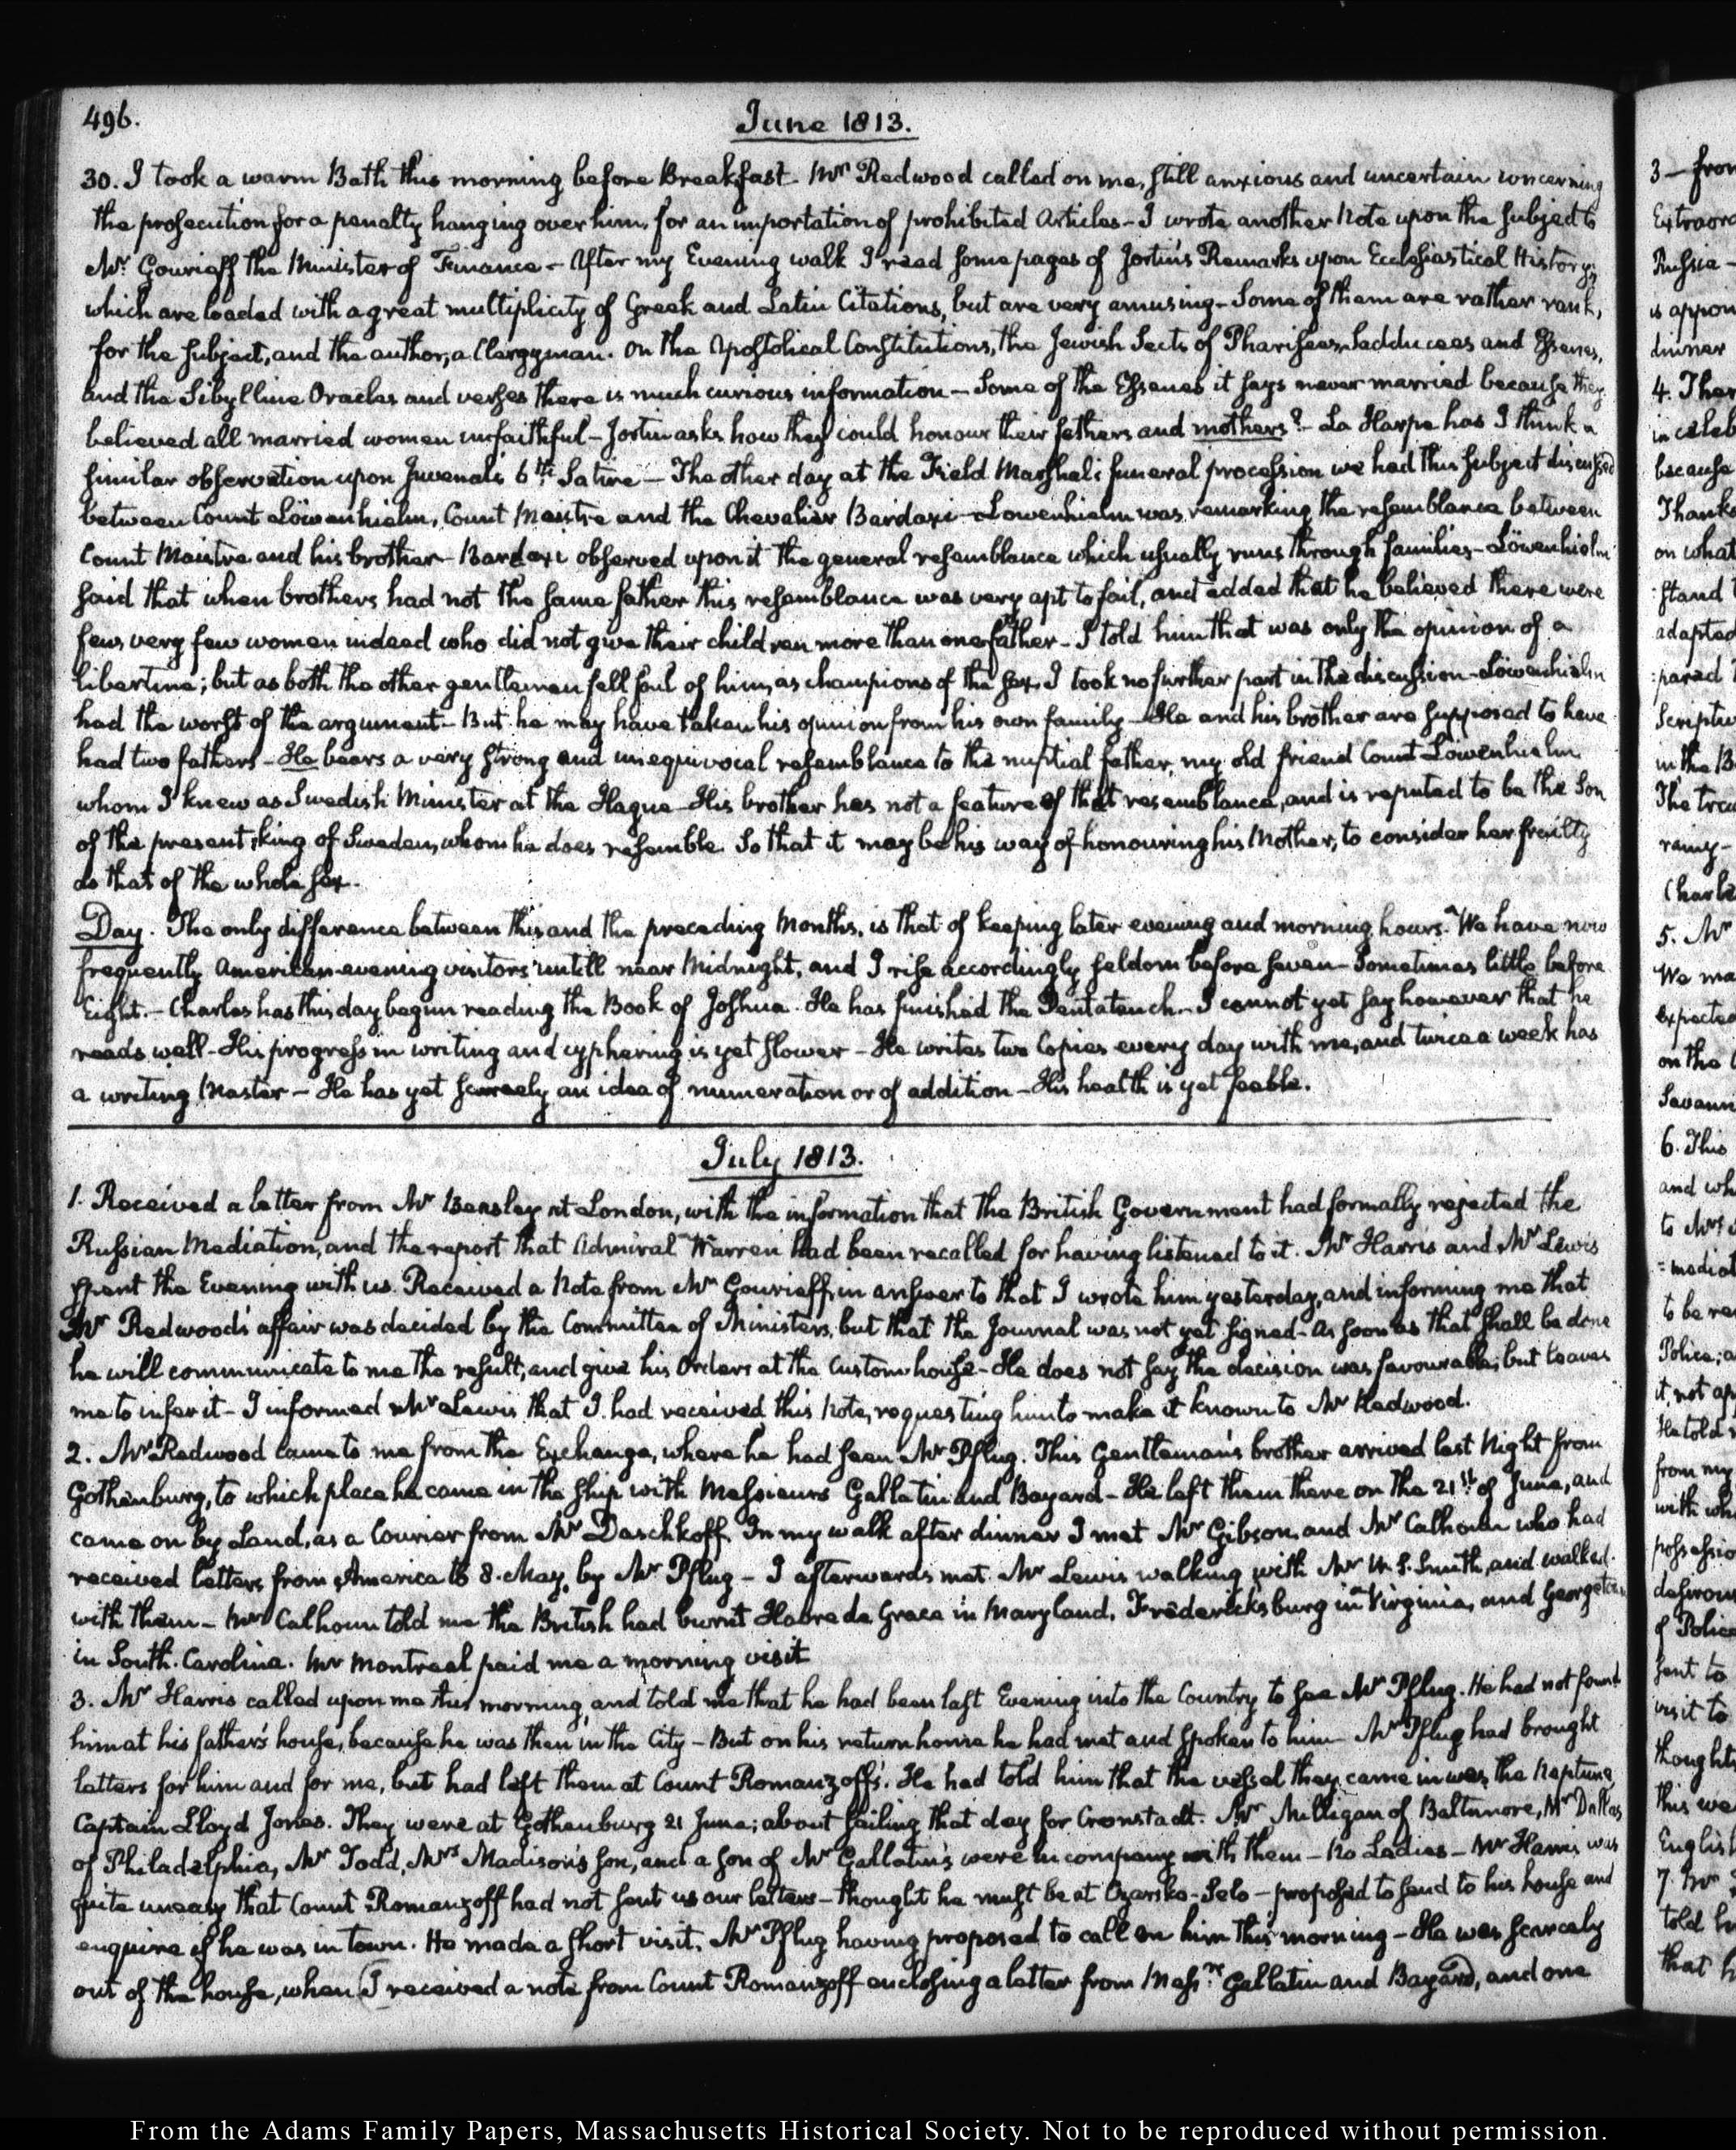 496.
June 1813.
30. I took a warm Bath this morning before Breakfast. Mr. Redwood called on me, still anxious and uncertain concerning
the prosecution for a penalty hanging over him, for an importation of prohibited Articles - I wrote another Note upon the subject to
Mr. Gourieff the Minister of Finance - After my Evening walk I read some pages of Jortin's Remarks upon Ecclesiastical History,
which are loaded with a great multiplicity of Greek and Latin Citations, but are very amusing - Some of them are rather rank,
for the subject, and the author, a Clergyman. On the Apostolical Constitutions, the Jewish Sects of Pharisees, Sadducees and Essenes,
and the Sibylline Oracles and verses there is much curious information - Some of the Essenes it says never married because they
believed all married women unfaithful - Jortin asks how they could honour their fathers and mothers? - La Harpe has I think a
similar observation upon Juvenal's 6th. Satire - The other day at the Field Marshal's funeral procession we had this subject discussed
between Count Löwenhielm, Count Maistre and the Chevalier Bardaxi - Lowenhielm was remarking the resemblance between
Count Maistre and his brother - Bardaxi observed upon it the general resemblance which usually runs through families - Löwenhielm
said that when brothers had not the same father this resemblance was very apt to fail, and added that he believed there were
few, very few women indeed who did not give their children more than one father - I told him that was only the opinion of a
libertine; but as both the other gentlemen fell foul of him, as champions of the sex, I took no further part in the discussion - Löwenhielm
had the worst of the argument - But he may have taken his opinion from his own family - He and his brother are supposed to have
had two fathers - He bears a very strong and unequivocal resemblance to the nuptial father, my old friend Count Löwenhielm
whom I knew as Swedish Minister at the Hague - His brother has not a feature of that resemblance, and is reputed to be the Son
of the present king of Sweden, whom he does resemble. So that it may be his way of honouring his Mother, to consider her frailty
as that of the whole sex.
Day. The only difference between this and the preceding Months, is that of keeping later evening and morning hours. We have now
frequently American evening visitors untill near Midnight, and I rise accordingly seldom before seven - Sometimes little before
Eight. - Charles has this day begun reading the Book of Joshua. He has finished the Pentateuch. - I cannot yet say however that he
reads well - His progress in writing and cyphering is yet slower - He writes two Copies every day with me, and twice a week has
a writing Master - He has yet scarcely an idea of numeration or of addition - His health is yet feeble.
July 1813.
1. Received a letter from Mr Beasley at London, with the information that the British Government had formally rejected the
Russian Mediation, and the report that Admiral Warren had been recalled for having listened to it. Mr Harris and Mr Lewis
spent the Evening with us. Received a Note from Mr Gourieff, in answer to that I wrote him yesterday, and informing me that
Mr Redwood's affair was decided by the Committee of Ministers, but that the Journal was not yet signed - As soon as that shall be done
he will communicate to me the result, and give his Orders at the Custom house - He does not say the decision was favourable, but leaves
me to infer it - I informed Mr Lewis that I had received this Note, requesting him to make it known to Mr Redwood.
2. Mr Redwood came to me from the Exchange, where he had seen Mr Pflug. This Gentleman's brother arrived last Night from
Gothenburg, to which place he came in the ship with Messieurs Gallatin and Bayard - He left them there on the 21st of June, and
came on by Land, as a Courier from Mr Daschkoff. In my walk after dinner I met Mr Gibson, and Mr Calhoun who had
received letters from America to 8. May, by Mr Pflug - I afterwards met Mr Lewis walking with Mr W. S. Smith, and walked
with them - Mr Calhoun told me the British had burnt Havre de Grace in Maryland, Fredericksburg in Virginia, and Georgetown
in South. Carolina. Mr Montreal paid me a morning visit
3. Mr Harris called upon me this morning, and told me that he had been last Evening into the Country to see Mr Pflug. He had not found
him at his father's house, because he was then in the City - But on his return home he had met and spoken to him - Mr Pflug had brought
letters for him and for me, but had left them at Count Romanzoff's. He had told him that the vessel they came in was the Neptune,
Captain Lloyd Jones. They were at Gothenburg 21 June; about sailing that day for Cronstadt. Mr Milligan of Baltimore, Mr Dallas
of Philadelphia, Mr Todd, Mrs Madison's son, and a son of Mr Gallatin's were in company with them - No Ladies - Mr Harris was
quite uneasy that Count Romanzoff had not sent us our letters - thought he must be at Czarsko-Selo - proposed to send to his house and
enquire if he was in town. He made a short visit, Mr Pflug having proposed to call on him this morning - He was scarcely
out of the house, when I received a note from Count Romanzoff enclosing a letter from Messrs Gallatin and Bayard, and one
3 - from
Russia -
dinner
4. Ther
because
Thanks
on what
stand
adapted
in the B
rainy -
Charle
5. Mr
We ma
expected
on the
Savann
6. This
and wh
to Mrs
to be re
Police; a
it, not ap
He told
from my
with wh
possessio
desirous
of Police
sent to
visit to
thought
this we
English
7. Mr
told h
that h
From the Adams Family Papers, Massachusetts Historical Society. Not to be reproduced without permission.